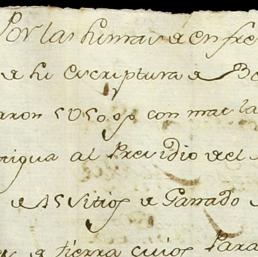 Por las himas de en fre
de hi escriptura de Be
aron 5050 os con mas la
rigua al Presidio del
de 15 sitios de Ganado
de tierra cuios Para